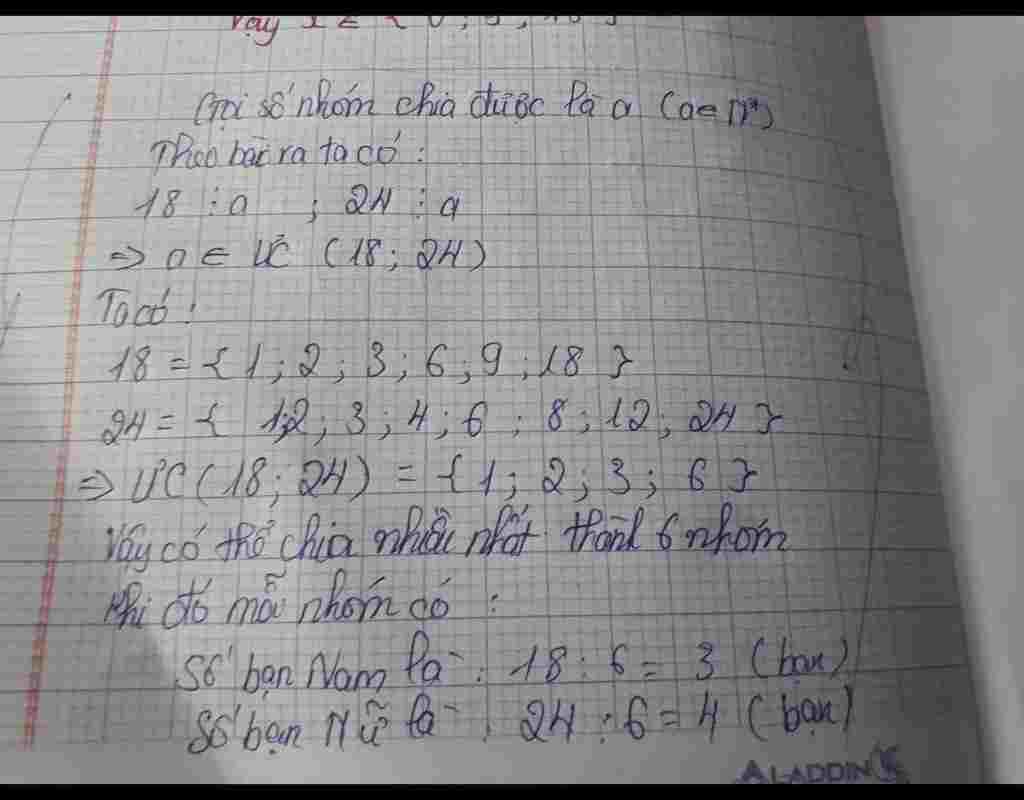 Vậy x ∈ {0; 9; 18}
Gọi số nhóm chia được là a (a∈N*)
Theo bài ra ta có :
18 ⋮ a ; 24 ⋮ a
=> a ∈ ƯC (18; 24)
Ta có :
18 = {1; 2; 3; 6; 9; 18 }
24 = { 1;2; 3; 4; 6 ; 8; 12; 24 }
=> ƯC(18; 24) = {1; 2; 3; 6 }
Vậy có thể chia nhiều nhất thành 6 nhóm
Khi đó mỗi nhóm có :
Số bạn Nam là : 18 : 6 = 3 (bạn)
Số bạn Nữ là : 24 : 6 = 4 (bạn)
ALADDIN